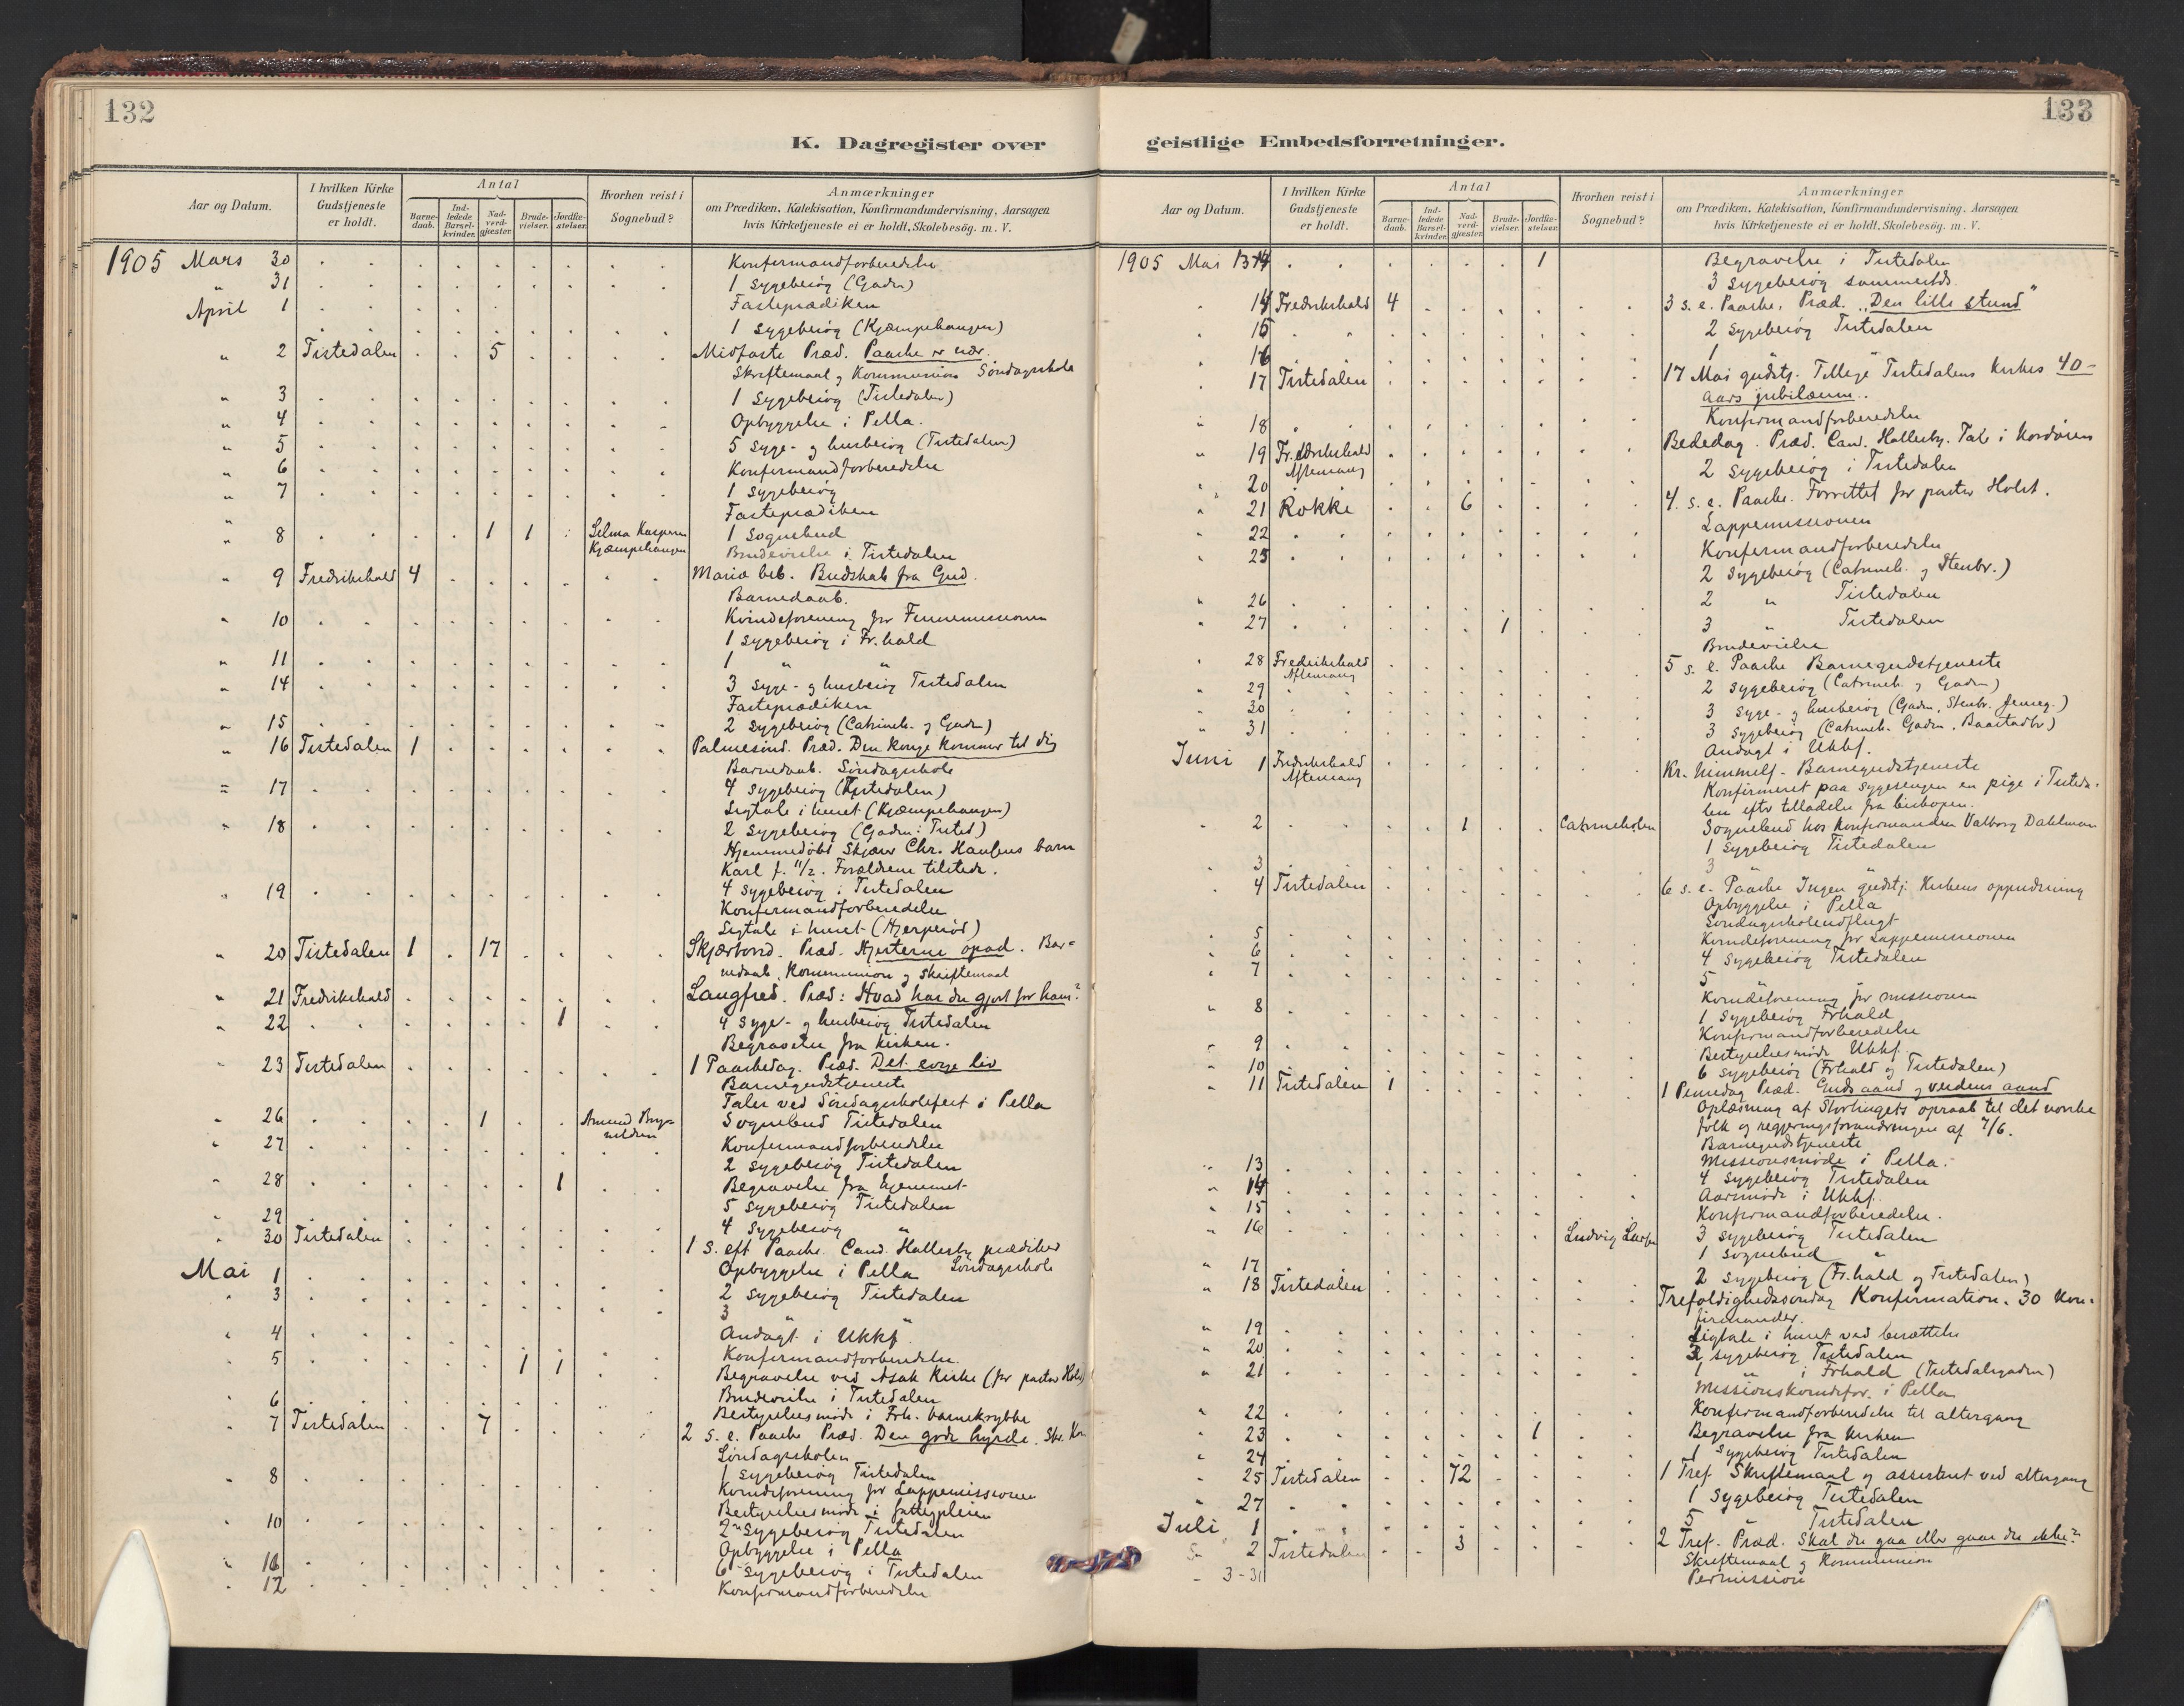 132
K. Dagregister over
Aar og Datum.
I hvilken Kirke Gudstjeneste er holdt.
Antal
Barne-daab.
Ind-ledede Barsel-kvinder.
Nad-verd-gjæster.
Brude-vielser.
Jordfæ-stelser.
Hvorhen reist i Sognebud?
Anmærkninger
om Prædiken, Katekisation, Konfirmandundervisning, Aarsagen
hvis Kirketjeneste ei er holdt, Skolebesøg. m. V.
1905 Mars 30 Konfirmandforberedelse
" 31 1 sygebesøg (Gaden)
April 1 Fasteprædiken
1 sygebesøg (Kjæmpehaugen)
" 2 Tistedalen 5 Midfaste Præd. Paaske er nær.
Skriftemaal og Kommunion Søndagsskole
" 3 1 sygebesøg (Tistedalen)
" 4 Opbyggelse i Pella.
" 5 5 syge- og husbesøg (Tistedalen)
" 6 Konfirmandforberedelse
" 7 1 sygebesøg
Fasteprædiken
" 8 1 1 Selma Kaspersen 1 Sognebud
Kjæmpehaugen Brudevielse i Tistedalen
" 9 Fredrikshald 4 Mariæ beb. Budskab fra Gud.
Barnedaab.
" 10 Kvindeforening for Finnemissionen
1 sygebesøg i Fr.hald
" 11 1 " "
" 14 3 syge- og husbesøg Tistedalen
Fasteprædiken
" 15 2 sygebesøg (Catrineh. og Gaden)
" 16 Tistedalen 1 Palmesønd. Præd. Din konge kommer til dig
Barnedaab. Søndagsskole
" 17 4 sygebesøg (Tistedalen)
Ligtale i huset (Kjæmpehaugen)
" 18 2 sygebesøg (Gaden i Tisted)
Hjemmedøbt Skjær Chr. Hansens barn
Karl f. 11/2. Forældrene tilstede.
" 19 4 sygebesøg i Tistedalen
Konfirmandforberedelse
Ligtale i huset (Hjerperød)
" 20 Tistedalen 1 17 Skjærtorsd. Præd. Hjerterne opad. Bar-
nedaab, Kommunion og skriftemaal
" 21 Fredrikshald Langfred. Præd: Hvad har du gjort for ham?
" 22 1 4 syge- og husbesøg Tistedalen
Begravelse fra kirken.
" 23 Tistedalen 1 Paaskedag. Præd. Det evige liv
Barnegudstjeneste
Taler ved Søndagsskolefest i Pella
" 26 1 Amund Bryn- Sognebud Tistedalen
" 27 Konfirmandforberedelse
2 sygebesøg Tistedalen
" 28 1 Begravelse fra hjemmet
5 sygebesøg Tistedalen
" 29 4 sygebesøg "
" 30 Tistedalen 1 S. eft Paaske. Cand. Hallesby prædiker
Mai 1 Opbyggelse i Pella Søndagsskole
" 3 2 sygebesøg Tistedalen
3 "
" 4 Andagt i Ukkf.
" 5 1 1 Konfirmandforberedelse.
Begravelse ved Asak Kirke (for pastor Holst)
" 6 Brudevielse i Tistedalen
Bestyrelsesmøde i Frh. barnekrybbe
" 7 Tistedalen 7 2 s. e. Paaske Præd. Den gode hyrde. Skr. Kom
Søndagsskolen
" 8 1 sygebesøg Tistedalen
Kvindeforening for Lappemissionen
Bestyrelsesmøde i fattigpleien
" 10 2 sygebesøg Tistedalen
Opbyggelse i Pella
" 16 6 sygebesøg i Tistedalen
" 12 Konfirmandforberedelse
133
geistlige Embedsforretninger.
Aar og Datum.
I hvilken Kirke Gudstjeneste er holdt.
Antal
Barne-daab.
Ind-ledede Barsel-kvinder.
Nad-verd-gjæster.
Brude-vielser.
Jordfæ-stelser.
Hvorhen reist i Sognebud?
Anmærkninger
om Prædiken, Katekisation, Konfirmandundervisning, Aarsagen
hvis Kirketjeneste ei er holdt, Skolebesøg. m. V.
1905 Mai 13 1 Begravelse i Tistedalen
3 sygebesøg sammesteds
" 14 Fredrikshald 4 3 s. e. Paaske. Præd. "Den lille stund"
" 15 2 sygebesøg Tistedalen
" 16 1 "
" 17 Tistedalen 17 Mai gudstj. Tillige Tistedalens kirkes 40-
aars jubilæum.
" 18 Konfirmandforberedelse
" 19 Fredrikshald Bededag. Præd. Cand. Hallesby. Tale i kordøren
Aftensang
" 20 2 sygebesøg i Tistedalen
" 21 Rokke 6 4. s. e. Paaske. Forrettet for pastor Holst.
" 22 Lappemissionen
" 25 Konfirmandforberedelse
2 sygebesøg (Catrineh. og Stenbr.)
" 26 2 " Tistedalen
" 27 1 3 " Tistedalen
Brudevielse
" 28 Fredrikshald 5 s. e. Paaske Barnegudstjeneste
Aftensang
" 29 2 sygebesøg (Catrineh. og Gaden)
" 30 3 syge- og husbesøg (Gaden, Stenbr.
" 31 3 sygebesøg (Catrineh. Gaden, Baastadbr)
Andagt i Ukkf.
Juni 1 Fredrikshald Kr. himmelf. Barnegudstjeneste
Aftensang
Konfirmeret paa sygesengen en pige i Tisteda-
len efter tilladelse fra biskopen.
" 2 1 Catrineholm Sognebud hos konfirmanden Valborg Dahlman
1 sygebesøg Tistedalen
" 3 3 "
" 4 Tistedalen 6 s. e. Paaske Ingen gudstj. Kirkens oppudsning
Opbyggelse i Pella
Søndagsskoleudflugt
" 5 Kvindeforening for Lappemissionen
" 6 4 sygebesøg Tistedalen
" 7 5 "
Kvindeforening for missionen
" 8 1 sygebesøg Frhald
Konfirmandforberedelse
" 9 Bestyrelsesmøde Ukkf.
" 10 6 sygebesøg (Frhald og Tistedalen)
" 11 Tistedalen 1 1 Pinsedag Præd. Guds aand og verdens aand
Oplæsning af Stortingets opraab til det norske
folk og regjeringsforandringen af 7/6.
Barnegudstjeneste
" 13 Missionsmøde i Pella.
" 14 4 sygebesøg Tistedalen
Aarsmøde i Ukkf.
" 15 Konfirmandforberedelse.
" 16 Ludvig Larsen 3 sygebesøg Tistedalen
1 sognebud "
" 17 2 sygebesøg (Fr.hald og Tistedalen)
" 18 Tistedalen Trefoldighedssøndag Konfirmation. 30 kon-
firmander.
" 19 Ligtale i huset ved
" 20 2 sygebesøg Tistedalen
" 21 1 " i Frhald (Tistedalsgaden)
Missionskvindefor. i Pella
" 22 Konfirmandforberedelse til altergang
" 23 1 Begravelse fra kirken
" 24 1 sygebesøg Tistedalen
" 25 Tistedalen 72 1 Tref. Skriftemaal og assisteret ved altergang
" 27 1 sygebesøg Tistedalen
Juli 1 5 " Tistedalen
S. 2 Tistedalen 3 2 Tref. Præd. Skal du gaa eller gaar du ikke?
Skriftemaal og Kommunion
" 3-31 Permission